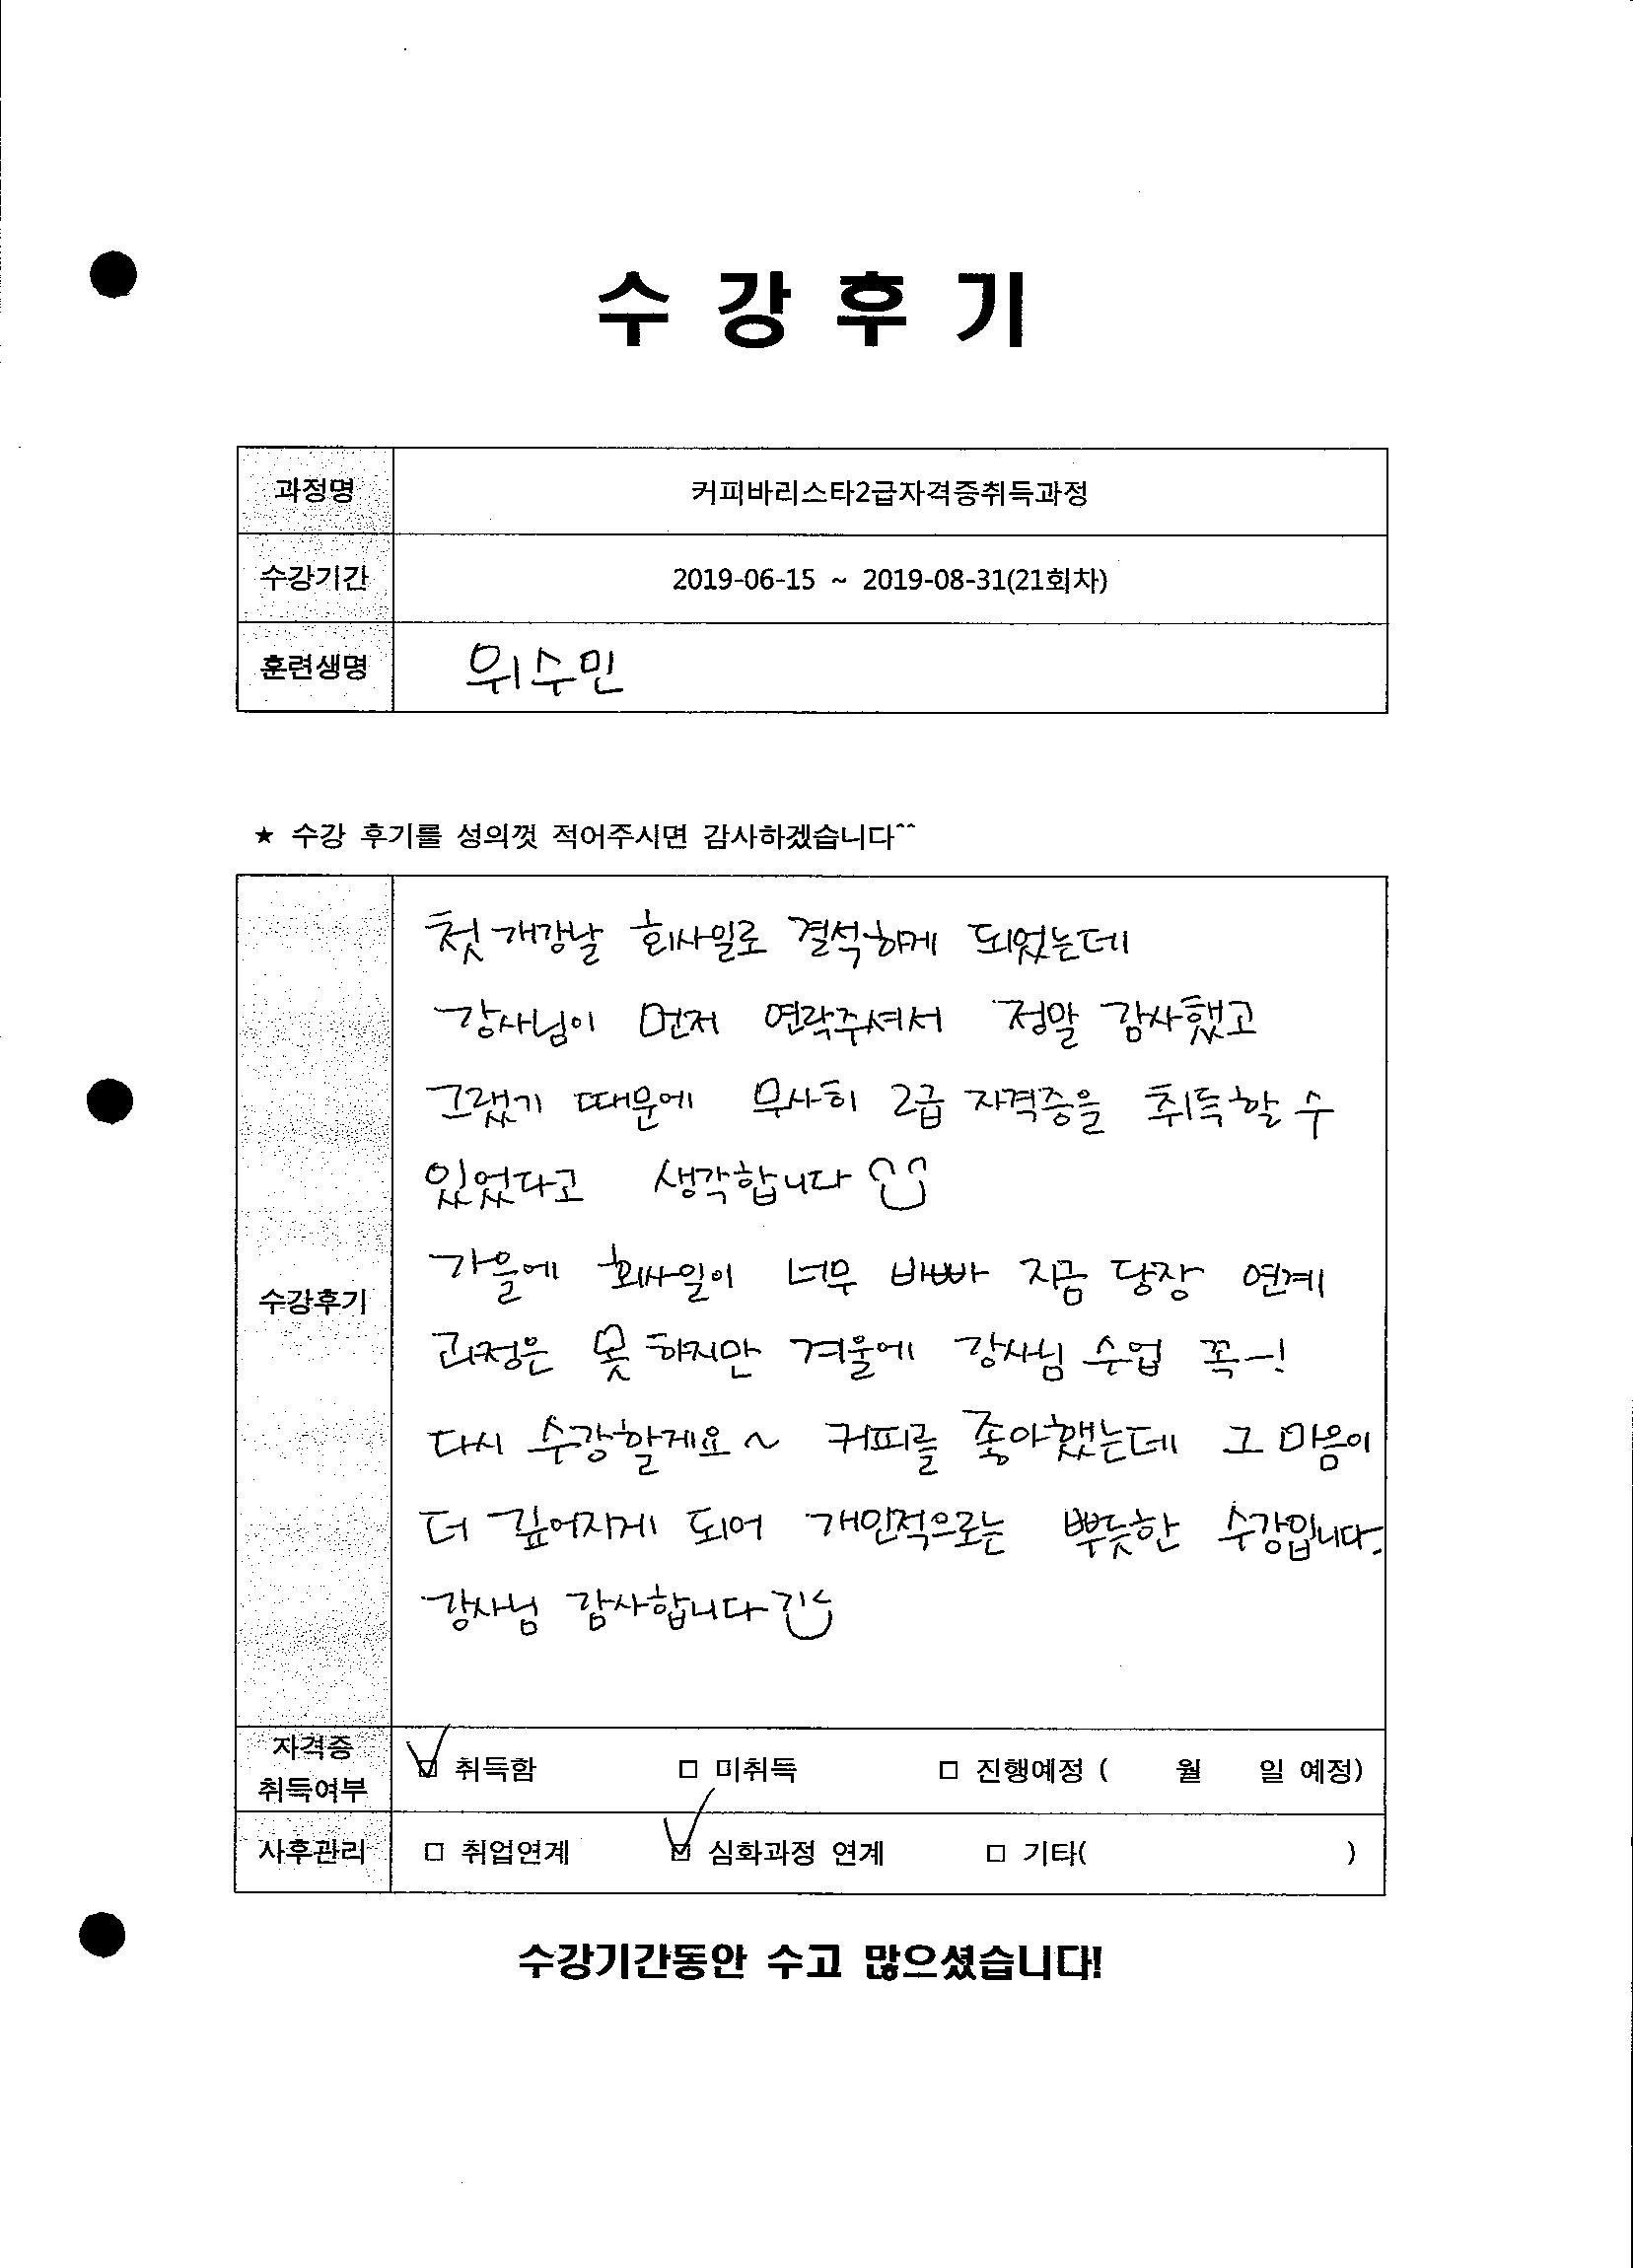 수 강 후 기
과정명 커피바리스타2급자격증취득과정
수강기간 2019-06-15 ~ 2019-08-31(21회차)
훈련생명 위수민
★ 수강 후기를 성의껏 적어주시면 감사하겠습니다^^
수강후기
첫 개강날 회사일로 결석하게 되었는데
강사님이 먼저 연락주셔서 정말 감사했고
그랬기 때문에 무사히 2급 자격증을 취득할 수
있었다고 생각합니다
가을에 회사일이 너무 바빠 지금 당장 연계
과정은 못 하지만 겨울에 강사님 수업 꼭-!
다시 수강할게요~ 커피를 좋아했는데 그 마음이
더 깊어지게 되어 개인적으로는 뿌듯한 수강입니다.
강사님 감사합니다
자격증
취득여부 ☑ 취득함 □ 미취득 □ 진행예정 ( 월 일 예정)
사후관리 □ 취업연계 ☑ 심화과정 연계 □ 기타( )
수강기간동안 수고 많으셨습니다!